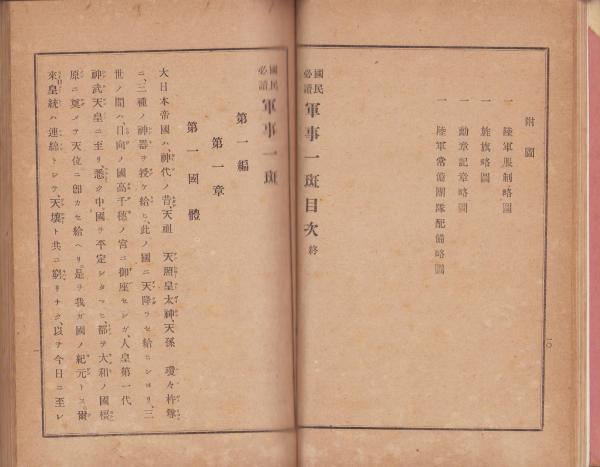 附圖
一 陸軍服制略圖
一 旌旗略圖
一 勳章記章略圖
一 陸軍常備團隊配備略圖
國民必讀 軍事一斑目次 終
一〇
國民必讀 軍事一斑
第一編
第一章
第一 國體
大日本帝國ハ、神代ノ昔、天祖 天照皇太神、天孫 瓊々杵尊
ニ、三種ノ神器ヲ授ケ給ヒ、此ノ國ニ天降ラセ給ヒシヨリ、三
世ノ間ハ、日向ノ國高千穗ノ宮ニ御座セシガ、人皇第一代
神武天皇ニ至リ、悉ク中國ヲ平定シタマヒ、都ヲ大和ノ國橿
原ニ奠メテ天位ニ卽カセ給ヘリ、是ヲ我ガ國ノ紀元トス、爾
來皇統ハ連綿トシテ、天壤ト共ニ窮リナク、以テ今日ニ至レ
一